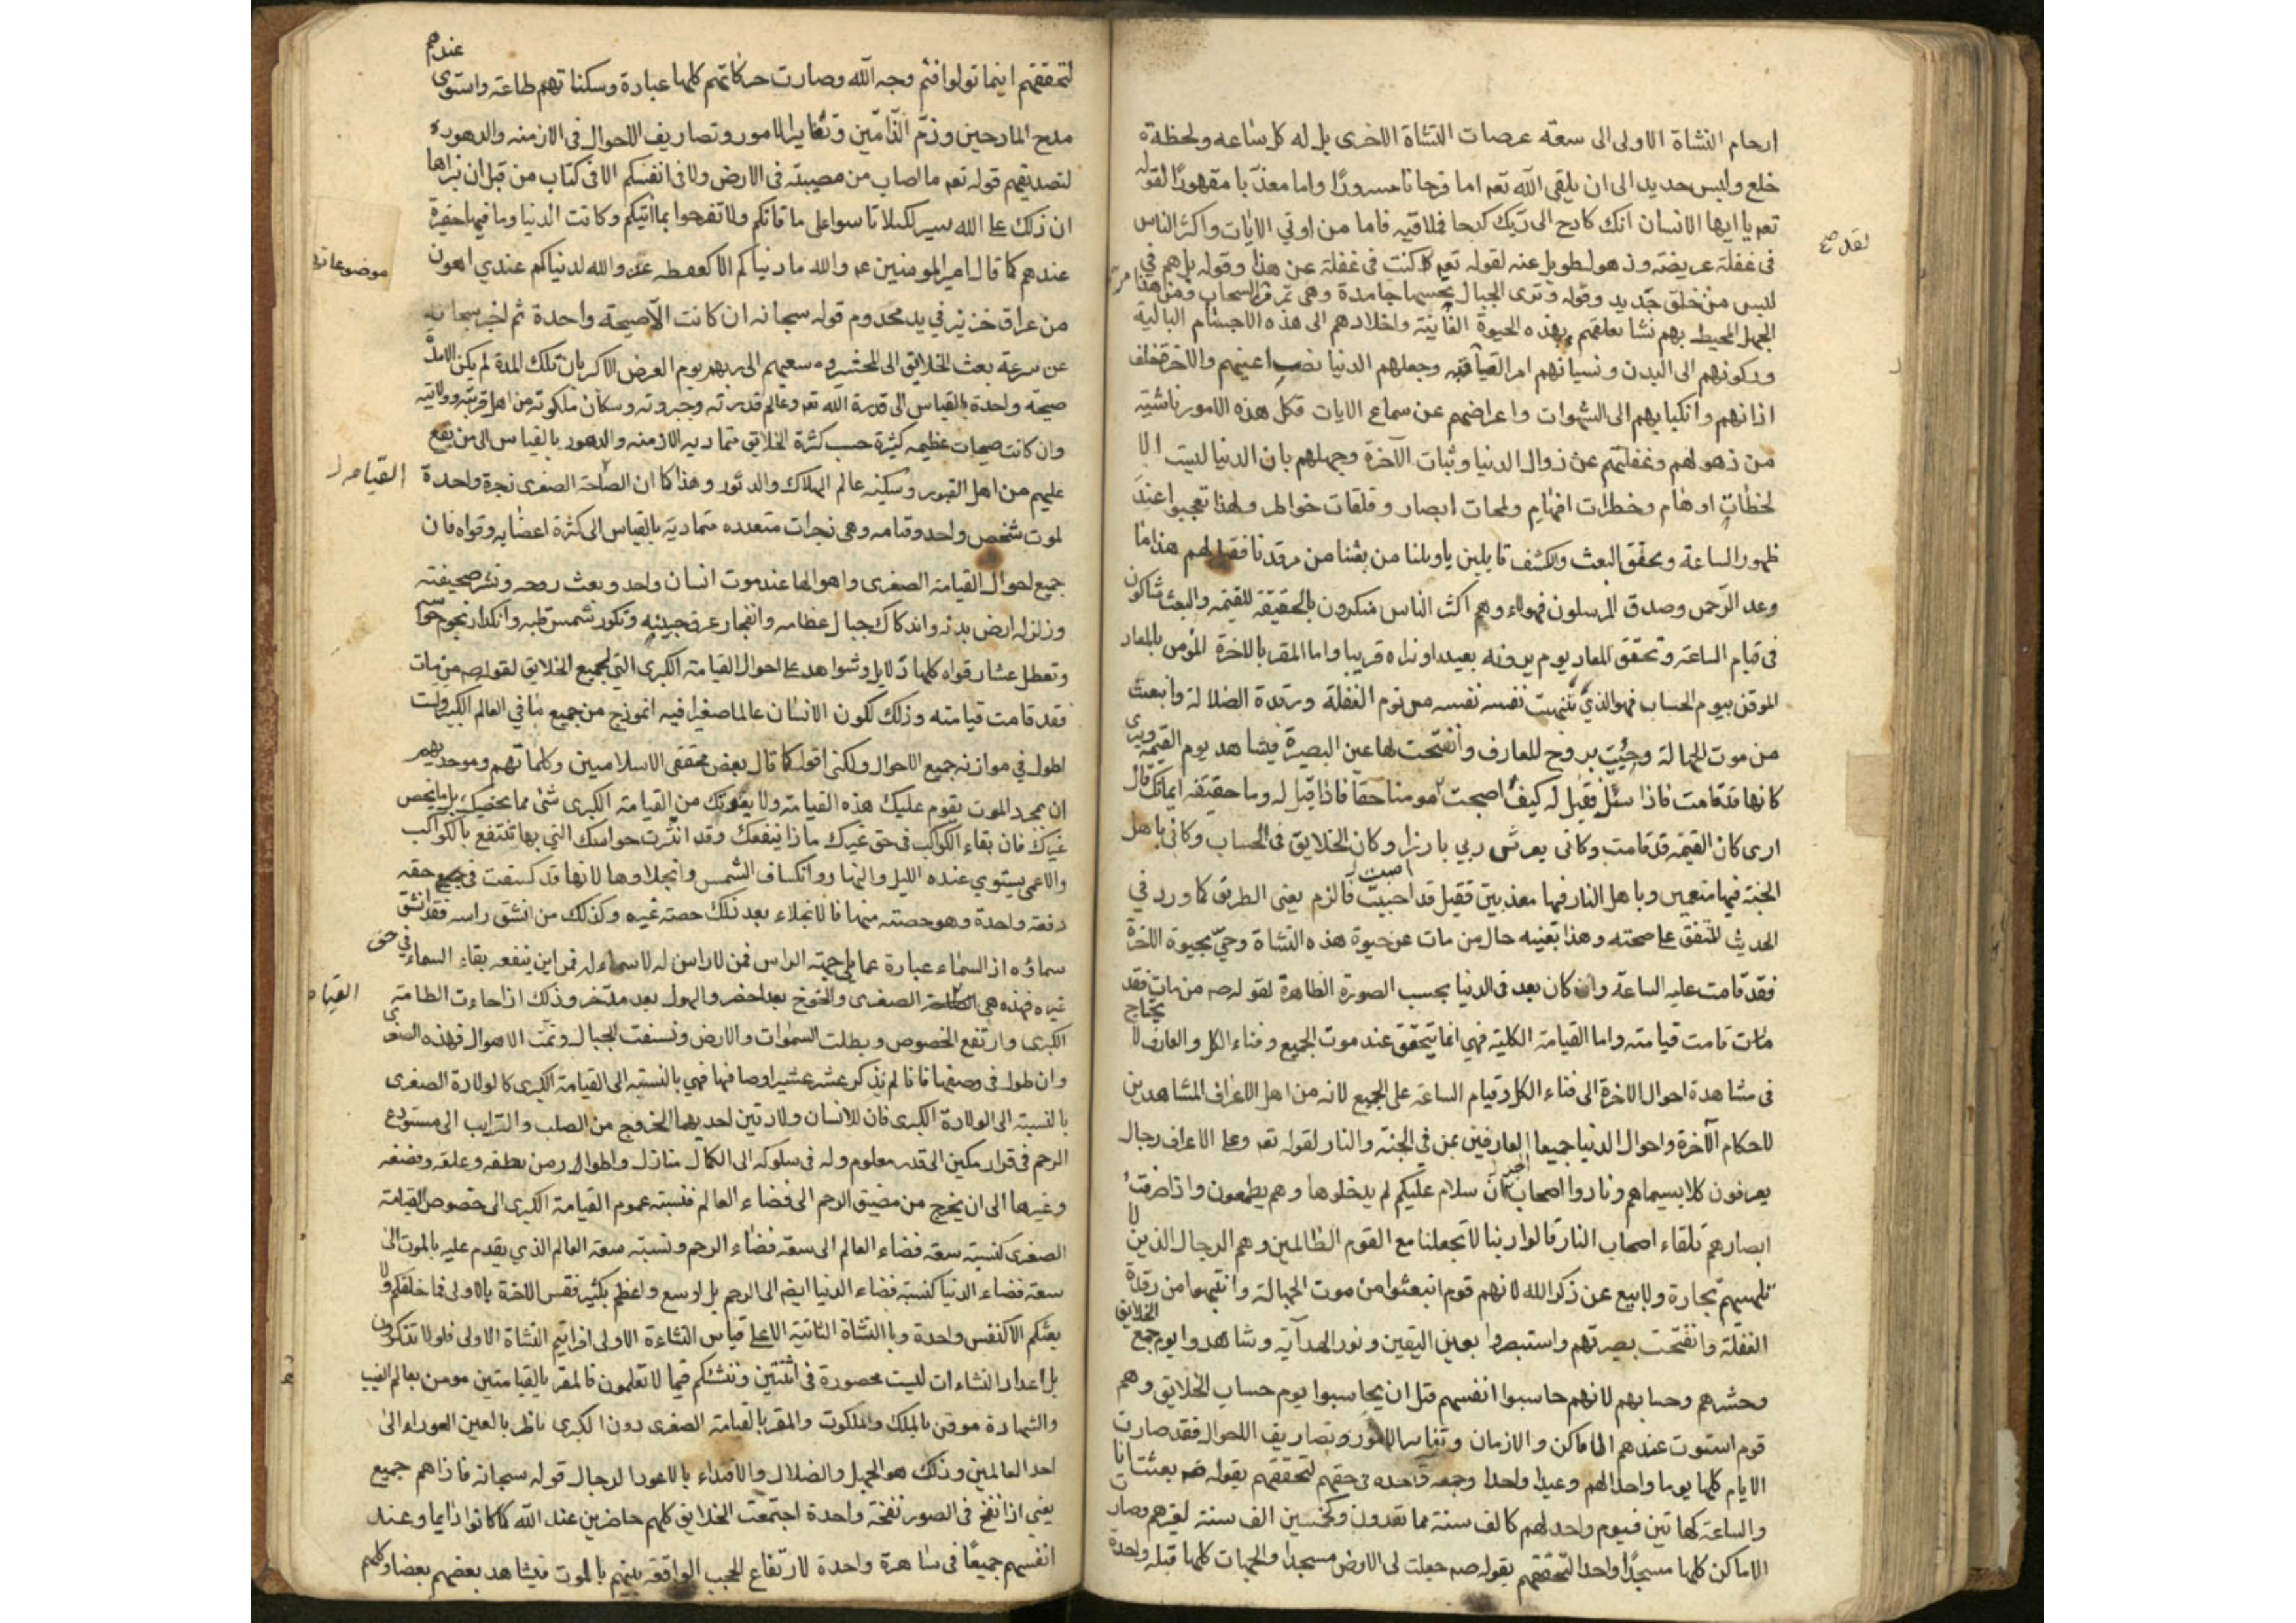 ارحام النشاة الاولى الى سعة عرصات النشاة الاخرى بل له كل ساعه ولحظة
خلع ولبس جديد الى ان يلقى الله تعم اما فرحانا مسرورًا واما معذبا مقهورًا لقوله
تعم يا ايها الانسان انك كادح الى ربك كدحا فملاقيه فاما من اوتي الايات واكثر الناس
فى غفلة عريضة وذهول طويل عنه لقوله تعم لقد كنت فى غفلة عن هذا وقوله بل هم في
لبس من خلق جديد وقوله وترى الجبال تحسبها جامدة وهى تمر مر السحاب ومن هذا
الجهل المحيط بهم نشا تعلقهم بهذه الحيوة الفانية واخلادهم الى هذه الاجسام البالية
وركونهم الى البدن ونسيانهم امر القيامة وجعلهم الدنيا نصب اعينهم والاخرة خلف
اذانهم وانكبابهم الى الشهوات واعراضهم عن سماع الايات فكل هذه الامور ناشية
من ذهولهم وغفلتهم عن زوال الدنيا وثبات الآخرة وجهلهم بان الدنيا ليست الا
لحظات اوهام وخطرات افهام ولمحات ابصار وفلقات خواطر ولهذا تعجبوا عند
ظهور الساعة وتحقق البعث والكشف قايلين ياويلنا من بعثنا من مرقدنا فقيل لهم هذا ما
وعد الرحمن وصدق المرسلون فهولاء وهم اكثر الناس منكرون بالحقيقة للقيمة والبعث شاكون
فى قيام الساعة وتحقق المعاد يوم يرونه بعيدا ونراه قريبا واما المقر بالاخرة المؤمن بالمعاد
الموقن بيوم الحساب فهو الذي تنبهت نفسه من نوم الغفلة ورقدة الضلالة وانبعث
من موت الجهالة وحييت بروح المعارف وانفتحت لها عين البصيرة فيشاهد يوم القيمة ويرى
كانها قد قامت فاذا سئل فقيل له كيف اصبحت مومنا حقا فاذا قيل له وما حقيقة ايمانك قال
ارى كان القيمة قد قامت وكانى بعرش ربي بارزا وكان الخلايق فى الحساب وكانى باهل
الجنة فيها متنعمين وباهل النار فيها معذبين فقيل قد اصبت فالزم يعنى الطريق كما ورد في
الحديث المتفق على صحته وهذا بعينه حال من مات عن حيوة هذه النشاة وحيّ بحيوة الاخرة
فقد قامت عليه الساعة وان كان بعد فى الدنيا بحسب الصورة الظاهرة لقوله صم من مات فقد
قامت قيامته واما القيامة الكلية فهي انما يتحقق عند موت الجميع وفناء الكل والعارف لا يحتاج
فى مشاهدة احوال الاخرة الى فناء الكل وقيام الساعة على الجميع لانه من اهل الاعراف المشاهدين
لاحكام الآخرة واحوال الدنيا جميعا العارفين بمن في الجنة والنار لقوله تعم وعلى الاعراف رجال
يعرفون كلا بسيماهم ونادوا اصحاب الجنة ان سلام عليكم لم يدخلوها وهم يطمعون واذا صرفت
ابصارهم تلقاء اصحاب النار قالوا ربنا لا تجعلنا مع القوم الظالمين وهم الرجال الذين لا
تلهيهم تجارة ولا بيع عن ذكر الله لانهم قوم انبعثوا من موت الجهالة وانتبهوا من رقدة
الغفلة وانفتحت بصيرتهم واستبصروا بعين اليقين ونور الهداية وشاهدوا يوم جمع الخلايق
وحشرهم وحسابهم لانهم حاسبوا انفسهم قبل ان يحاسبوا يوم حساب الخلايق وهم
قوم استوت عندهم الاماكن والازمان وتغاير الامور وتصاريف الاحوال فقد صارت
الايام كلها يوما واحدا لهم وعيدا واحدا وجمعة واحدة فى حقهم لتحققهم بقوله صم بعثت انا
والساعة كهاتين فيوم واحد لهم كالف سنة مما تعدون وكخمسين الف سنة لغيرهم وصارت
الاماكن كلها مسجدًا واحدا لتحققهم بقوله صم جعلت لى الارض مسجدا والجهات كلها قبلة واحدة
لتحققهم اينما تولوا فثم وجه الله وصارت حركاتهم كلها عبادة وسكناتهم طاعة واستوى عندهم
مدح المادحين وذم الذامين وتغاير الامور وتصاريف الاحوال فى الازمنه والدهور
لتصديقهم قوله تعم ما اصاب من مصيبة فى الارض ولا فى انفسكم الا فى كتاب من قبل ان نبراها
ان ذلك على الله يسير لكيلا تاسوا على ما فاتكم ولا تفرحوا بما اتيكم وكانت الدنيا وما فيها حقيرة
عندهم كما قال امير المومنين عم والله ما دنياكم الا كعفطه عنز والله لدنياكم عندي اهون
من عراق خنزير في يد مجذوم قوله سبحانه ان كانت الا صيحة واحدة ثم اخبر سبحانه
عن سرعة بعث الخلايق الى المحشر وسعيهم الى ربهم يوم العرض الاكبر بان تلك المدة لم يكن الا مدة
صيحة واحدة بالقياس الى قدرة الله تعم وعالم قدرته وجبروته وسكان ملكوته من اهل قربته وولايته
وان كانت صيحات عظيمه كثيرة حسب كثرة الخلايق متماديه الازمنه والدهور بالقياس الى من يقع
عليهم من اهل القبور وسكنه عالم الهلاك والدثور وهذا كما ان الصاخة الصغرى نجرة واحدة
لموت شخص واحد وقيامه وهى نجرات متعدده متمادية بالقياس الى كثرة اعضايه وقواه فان
جميع احوال القيامة الصغرى واهوالها عند موت انسان واحد وبعث روحه ونشر صحيفته
وزلزله ارض بدنه واندكاك جبال عظامه وانفجار عرق جبينه وتكور شمس قلبه وانكدار نجوم حواسه
وتعطل عشار قواه كلها دلايل وشواهد على احوال القيامة الكبرى التي لجميع الخلايق لقوله صم من مات
فقد قامت قيامته وذلك لكون الانسان عالما صغيرا فيه انموذج من جميع ما في العالم الكبير ولست
اطول في موازنه جميع الاحوال ولكنى اقول كما قال بعض محققى الاسلاميين وكلمائهم وموحديهم
ان بمجرد الموت يقوم عليك هذه القيامة ولا يفوتك من القيامة الكبرى شئ مما يخصك بل ما يخص
غيرك فان بقاء الكواكب فى حق غيرك ماذا ينفعك وقد انتثرت حواسك التي بها تنتفع بالكواكب
والاعمى يستوي عنده الليل والنهار وانكساف الشمس وانجلاوها لانها قد كسفت فى حقه
دفعة واحدة وهو حصته منها فالانجلاء بعد ذلك حصة غيره وكذلك من انشق راسه فقد انشق
سماؤه اذ السماء عبارة عما يلى جهة الراس فمن لا راس له لا سماء له فمن اين ينفعه بقاء السماء في حق
غيره فهذه هى القيامة الصغرى والخوف بعد اخضر والهول بعد مدخر وذلك اذا جاءت الطامة
الكبرى وارتفع الخصوص وبطلت السموات والارض ونسفت الجبال وتمت الاهوال فهذه الصغرى
وان طول فى وصفها فانا لم نذكر عشر عشير اوصافها فهي بالنسبة الى القيامة الكبرى كالولادة الصغرى
بالنسبة الى الولادة الكبرى فان للانسان ولادتين احديهما الخروج من الصلب والترايب الى مستودع
الرحم فى قرار مكين الى قدر معلوم وله فى سلوكه الى الكمال منازل واطوار من نطفه وعلقه ومضغه
وغيرها الى ان يخرج من مضيق الرحم الى فضاء العالم فنسبة عموم القيامة الكبرى الى خصوص القيامة
الصغرى كنسبة سعة فضاء العالم الى سعة فضاء الرحم ونسبة سعة العالم الذي يقدم عليه بالموت الى
سعة فضاء الدنيا كنسبة فضاء الدنيا ايضا الى الرحم بل اوسع واعظم بكثير فقس الاخرة بالاولى فما خلقكم ولا
بعثكم الا كنفس واحدة وما النشاة الثانية الا على قياس النشاءة الاولى افرايتم النشاة الاولى فلولا تذكرون
بل اعداد النشاءات ليست محصورة فى اثنتين وننشئكم فيما لا تعلمون فالمقر بالقيامتين مومن بعالم الغيب
والشهادة موقن بالملك والملكوت والمقر بالقيامة الصغرى دون الكبرى ناظر بالعين العوراء الى
احد العالمين وذلك هو الجهل والضلال والاقتداء بالاعور الدجال قوله سبحانه فاذا هم جميع
يعني اذا نفخ فى الصور نفخة واحدة اجتمعت الخلايق كلهم حاضرين عند الله كما كانوا دايما وعند
انفسهم جميعًا فى ساهرة واحدة لارتفاع الحجب الواقعة بينهم بالموت فيشاهد بعضهم بعضا وكلهم